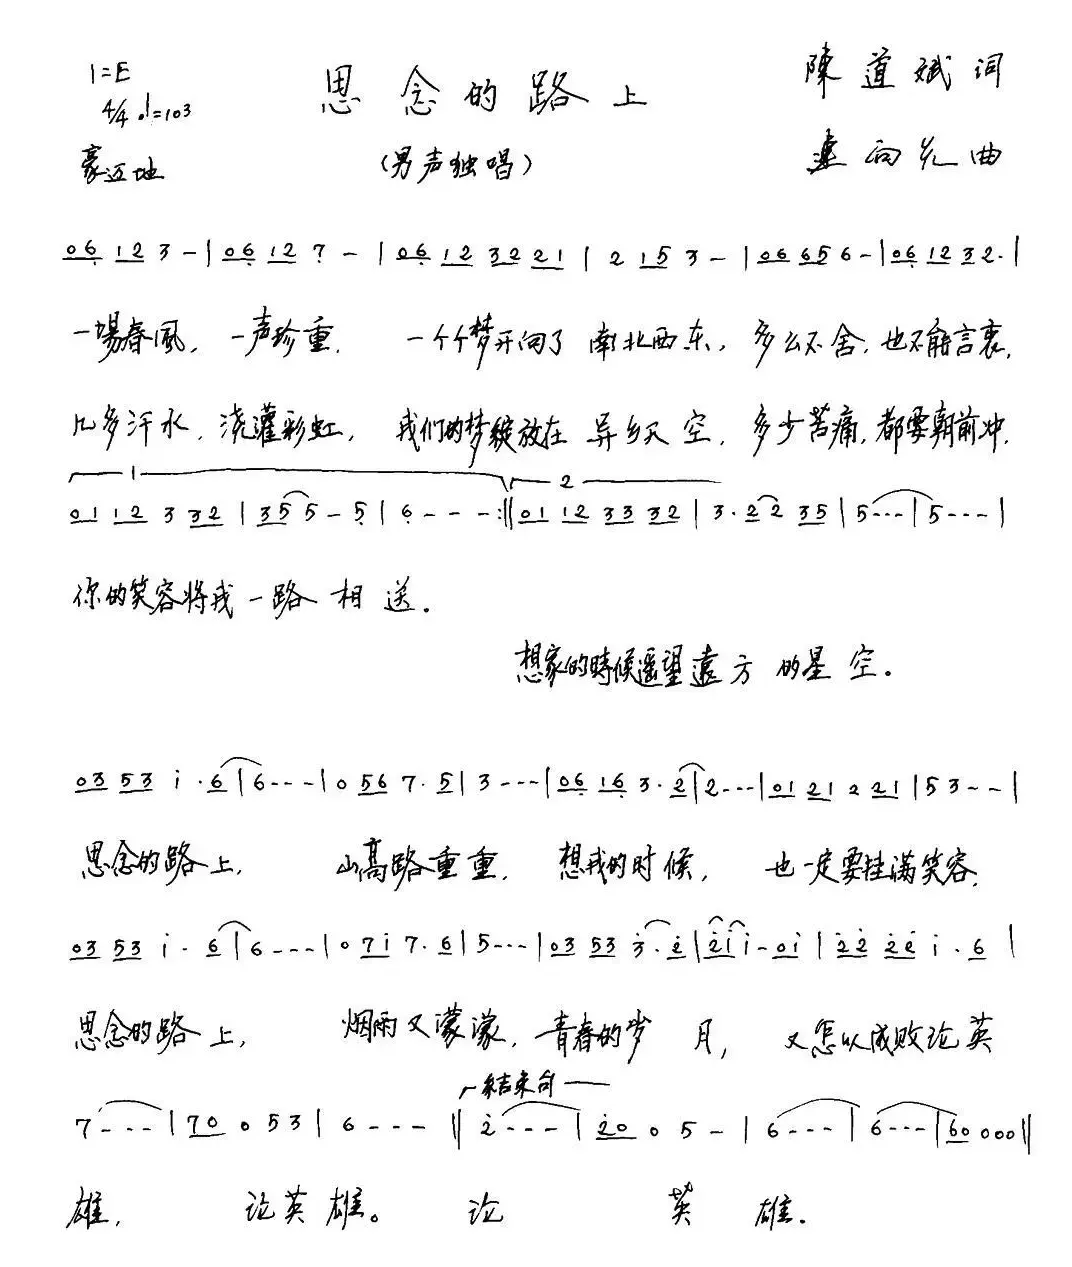 1=E
思念的路上
陳道斌词
4/4 ♩=103
豪迈地
(男声独唱)
向 曲
06 12 3 - | 06 12 7 - | 06 12 32 21 | 2 15 3 - | 06 65 6 - | 06 12 32. |
一場春風, 一声珍重, 一个个梦开向了南北西东, 多么不舍, 也不能言衷,
几多汗水, 浇灌彩虹, 我们的梦绽放在异乡天空, 多少苦痛, 都要朝前冲,
1 2
01 12 3 32 | 35 5 - 5 | 6 - - - :|| 01 12 33 32 | 3. 22 35 | 5 - - - | 5 - - - |
你的笑容将我一路相送.
想家的時候遥望遠方的星空.
03 53 i. 6 | 6 - - - | 0 56 7. 5 | 3 - - - | 06 16 3. 2 | 2 - - - | 01 21 2 21 | 5 3 - - |
思念的路上, 山高路重重, 想我的时候, 也一定要挂满笑容,
03 53 i. 6 | 6 - - - | 0 7i 7. 6 | 5 - - - | 03 53 3. 2 | 2i i - 0i | 22 22 i. 6 |
思念的路上, 烟雨又濛濛, 青春的岁月, 又怎以成败论英
结束句
7 - - - | 70 0 5 3 | 6 - - - || 2 - - - | 20 0 5 - | 6 - - - | 6 - - - | 60 000 ||
雄, 论英雄。论英雄.